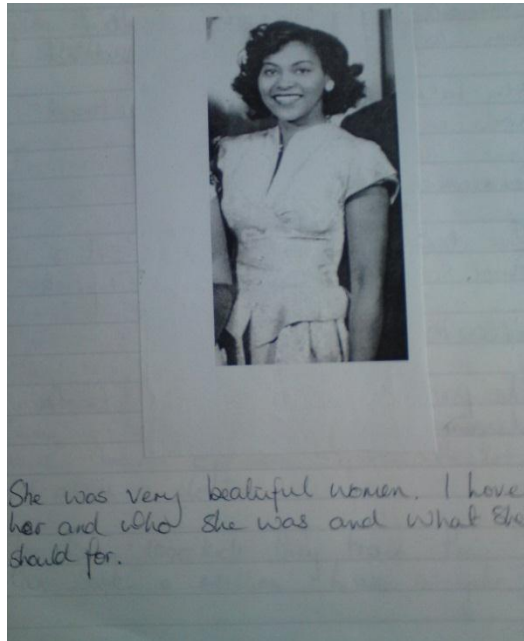 She was very beatiful women. I love
her and who she was and what she
should for.